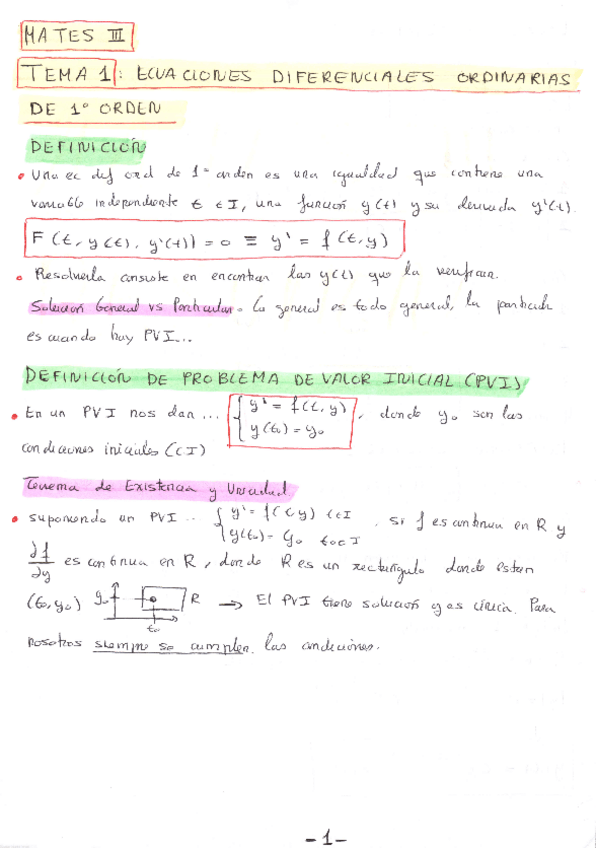 MATES III
TEMA 1: ECUACIONES DIFERENCIALES ORDINARIAS
DE 1º ORDEN
DEFINICIÓN
• Una ec dif ord de 1º orden es una igualdad que contiene una
variable independiente t ∈ I, una función y(t) y su derivada y'(t).
F(t, y(t), y'(t)) = 0 ≡ y' = f(t,y)
• Resolverla consiste en encontrar las y(t) que la verifican.
Solución General vs Particular. La general es todo general, la particular
es cuando hay PVI...
DEFINICIÓN DE PROBLEMA DE VALOR INICIAL (PVI)
• En un PVI nos dan ... { y' = f(t,y) , donde y₀ son las
y(t₀) = y₀
condiciones iniciales (CI)
Teorema de Existencia y Unicidad
• suponiendo un PVI .. { y' = f(t,y) t∈I , si f es continua en R y
y(t₀) = y₀ t₀∈I
∂f/∂y es continua en R, donde R es un rectángulo donde estan
(t₀,y₀) y₀ R → El PVI tiene solución y es única. Para
t₀
nosotros siempre se cumplen las condiciones.
-1-